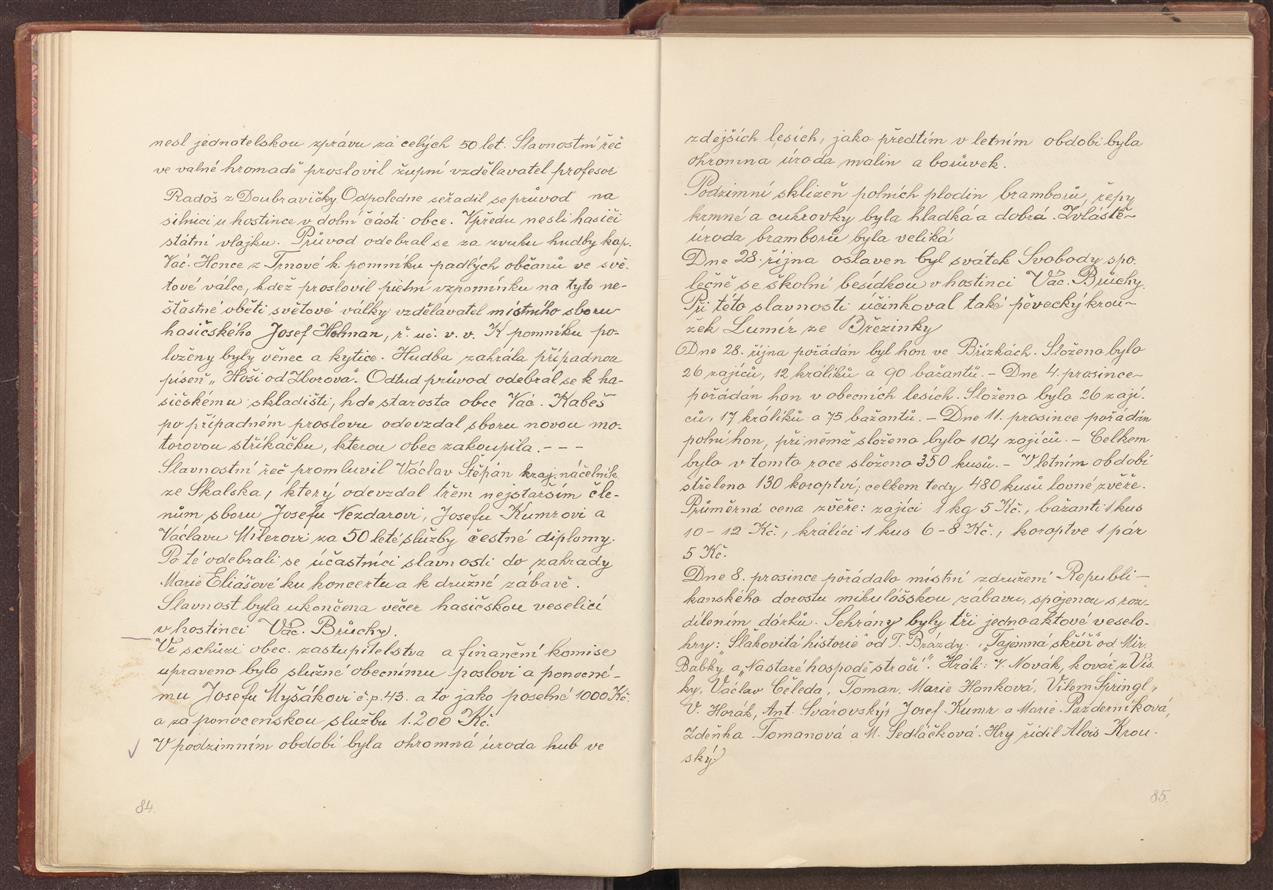 nesl jednatelskou zprávu za celých 50 let. Slavnostní řeč
ve valné hromadě proslovil župní vzdělavatel profesor
Radoš z Doubravičky. Odpoledne seřadil se průvod na
silnici u hostince v dolní části obce. Vpředu nesli hasiči
státní vlajku. Průvod odebral se za zvuku hudby kap.
Vác. Honce z Trnové k pomníku padlých občanů ve svě-
tové válce, kdež proslovil pietní vzpomínku na tyto ne-
šťastné oběti světové války vzdělavatel místního sboru
hasičského Josef Holman, ř. uč. v. v. K pomníku po-
loženy byly věnec a kytice. Hudba zahrála případnou
píseň „Hoši od Zborova". Odtud průvod odebral se k ha-
sičskému skladišti, kde starosta obce Vác. Kabeš
po případném proslovu odevzdal sboru novou mo-
torovou stříkačku, kterou obec zakoupila. - - -
Slavnostní řeč promluvil Václav Štěpán kraj. náčelník
ze Skalska, který odevzdal třem nejstarším čle-
nům sboru Josefu Nezdarovi, Josefu Kumrovi a
Václavu Milerovi za 50 leté služby čestné diplomy.
Po té odebrali se účastníci slavnosti do zahrady
Marie Eliášové ku koncertu a k družné zábavě.
Slavnost byla ukončena večer hasičskou veselicí
v hostinci Vác. Brůchy.
Ve schůzi obec. zastupitelstva a finanční komise
upraveno bylo služné obecnímu poslovi a ponocné-
mu Josefu Myšákovi č.p. 43. a to jako poselné 1000 Kč.
a za ponocenskou službu 1.200 Kč.
V podzimním období byla ohromná úroda hub ve
84.
zdejších lesích, jako předtím v letním období byla
ohromna úroda malin a borůvek.
Podzimní sklizeň polních plodin bramborů, řepy
krmné a cukrovky byla hladká a dobrá. Zvláště
úroda bramborů byla veliká
Dne 28. října oslaven byl svátek Svobody spo-
lečně se školní besídkou v hostinci Vác. Brůchy.
Při této slavnosti účinkoval také pěvecký krou-
žek Lumír ze Březinky
Dne 28. října pořádán byl hon ve Břízkách. Složeno bylo
26 zajíců, 12 králíků a 90 bažantů. - Dne 4. prosince
pořádán hon v obecních lesích. Složeno bylo 26 zají-
ců, 17 králíků a 75 bažantů. - Dne 11. prosince pořádán
polní hon, při němž složeno bylo 104 zajíců. - Celkem
bylo v tomto roce složeno 350 kusů. - V letním období
střeleno 130 koroptví; celkem tedy 480 kusů lovné zvěře.
Průměrná cena zvěře: zajíci 1 kg 5 Kč., bažanti 1 kus
10 - 12 Kč., králíci 1 kus 6 - 8 Kč., koroptve 1 pár
5 Kč.
Dne 8. prosince pořádalo místní združení Republi-
kanského dorostu mikulášskou zábavu, spojenou s roz-
dílením dárků. Sehrány byly tři jednoaktové veselo-
hry: „Slakovitá historie" od T. Brázdy. „Tajemná skříň" od Mir.
Babky a „Na staré hospodě straší". Hráli: V. Novák, kovář z Vís-
ky, Václav Čeleda, Toman, Marie Hanková, Vilem Špringl,
V. Horák, Ant. Svárovský, Josef Kumr a Marie Pazderníková,
Zdeňka Tomanová a M. Sedláčková. Hry řídil Alois Krou-
ský
85.